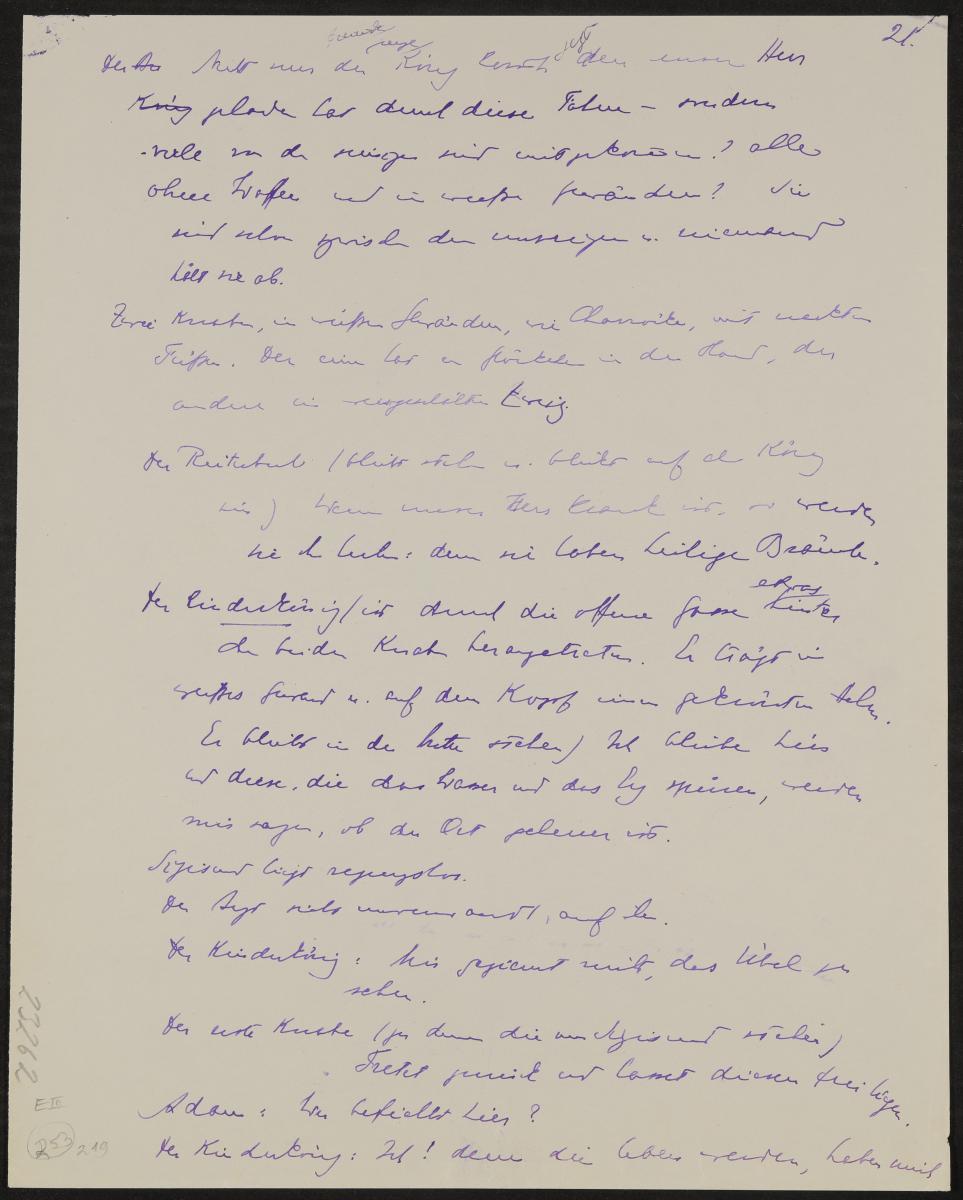 21.
fremde
junge
jetzt
Der Arzt Nicht nur der König kommt den unser Herr
König geladen hat durch diese Fahne – sondern
viele von den seinigen sind mitgekommen! alle
ohne Waffen und in weißen Gewändern! Sie
sind schon zwischen den unsrigen u. niemand
hält sie ab.
Zwei Knaben, in weißen Gewändern, wie Chorröcke, mit nackten
Füßen. Der eine hat ein Glöckchen in der Hand, der
andere ein Zweig.
Der Reiterbub (bleibt stehn u. blickt auf den König
hin) Wenn unser Herr krank ist, so werden
sie ihn heilen: denn sie haben heilige Bräuche.
etwas
Der Kinderkönig (ist durch die offene Gasse hinter
den beiden Knaben herangetreten. Er trägt ein
weißes Gewand u. auf dem Kopf einen gekrönten Helm.
Er bleibt in der Mitte stehen) Ich bleibe hier
und diese, die das Wasser und das Erz spüren, werden
mir sagen, ob der Ort geheuer ist.
Sigismund liegt regungslos.
Der Arzt sieht unverwandt auf ihn.
Der Kinderkönig: Mir geziemt nicht, das Übel zu
sehen.
Der erste Knabe (zu denen die um Sigismund stehen)
Tretet zurück und lasset diesen frei liegen.
Adam: Wer befiehlt hier?
Der Kinderkönig: Ich! denn die leben werden, haben mich
23262
E III
253
219